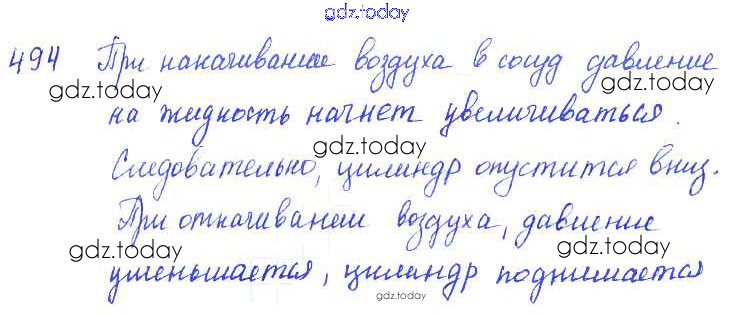 gdz.today
494 При накачивании воздуха в сосуд давление
gdz.today gdz.today
на жидкость начнет увеличиваться.
gdz.today
Следовательно, цилиндр опустится вниз.
gdz.today gdz.today
При откачивании воздуха, давление
gdz.today gdz.today
уменьшается, цилиндр поднимается
gdz.today